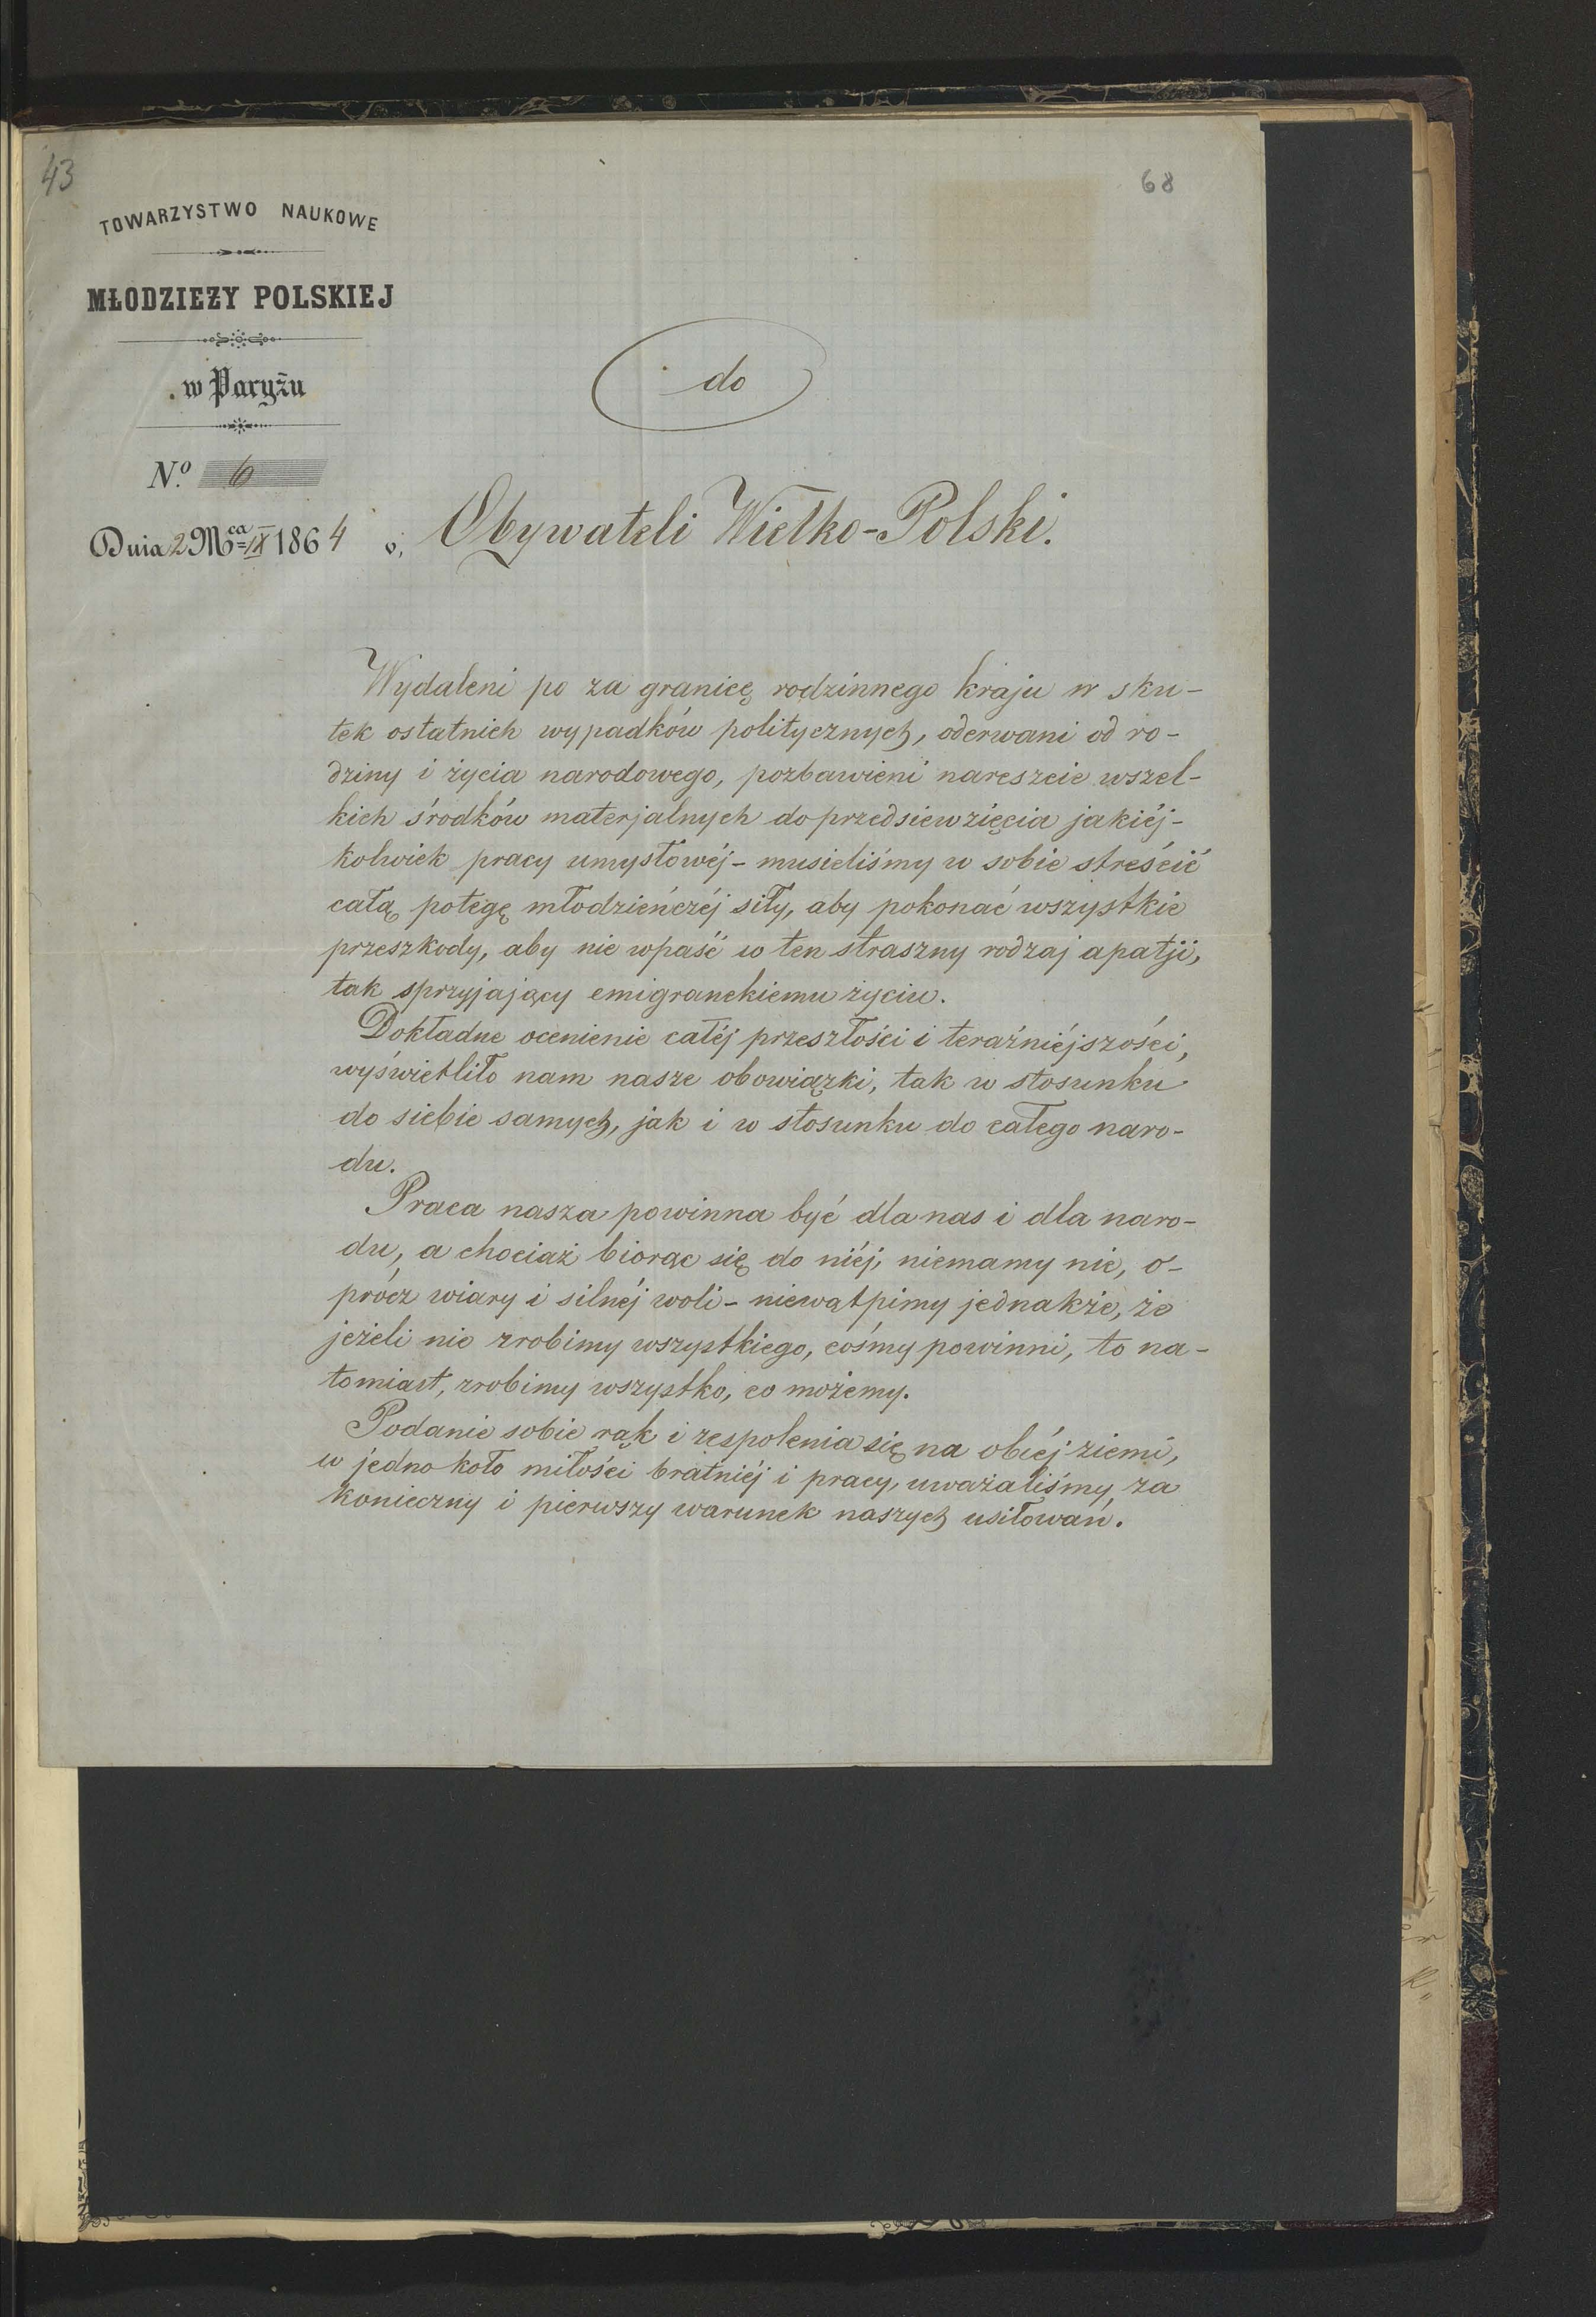 43
68
TOWARZYSTWO NAUKOWE
MŁODZIEŻY POLSKIEJ
w Paryżu
do
No. 6
Dnia 2 Mca IX 1864
Obywateli Wielko-Polski.
Wydaleni po za granicę rodzinnego kraju w sku-
tek ostatnich wypadków politycznych, oderwani od ro-
dziny i życia narodowego, pozbawieni nareszcie wszel-
kich środków materjalnych do przedsiewzięcia jakiéj-
kolwiek pracy umysłowéj - musieliśmy w sobie streścić
całą potęgę młodzieńczéj siły, aby pokonać wszystkie
przeszkody, aby nie wpaść w ten straszny rodzaj apatji,
tak sprzyjający emigranckiemu życiu.
Dokładne ocenienie całéj przeszłości i teraźniéjszości,
wyświetliło nam nasze obowiązki, tak w stosunku
do siebie samych, jak i w stosunku do całego naro-
du.
Praca nasza powinna być dla nas i dla naro-
du, a chociaż biorąc się do niéj, niemamy nic, o-
prócz wiary i silnéj woli - niewątpimy jednakże, że
jeżeli nie zrobimy wszystkiego, cośmy powinni, to na-
tomiast, zrobimy wszystko, co możemy.
Podanie sobie rąk i zespolenia się na obcéj ziemi,
w jedno koło miłości bratniéj i pracy, uważaliśmy za
konieczny i pierwszy warunek naszych usiłowań.